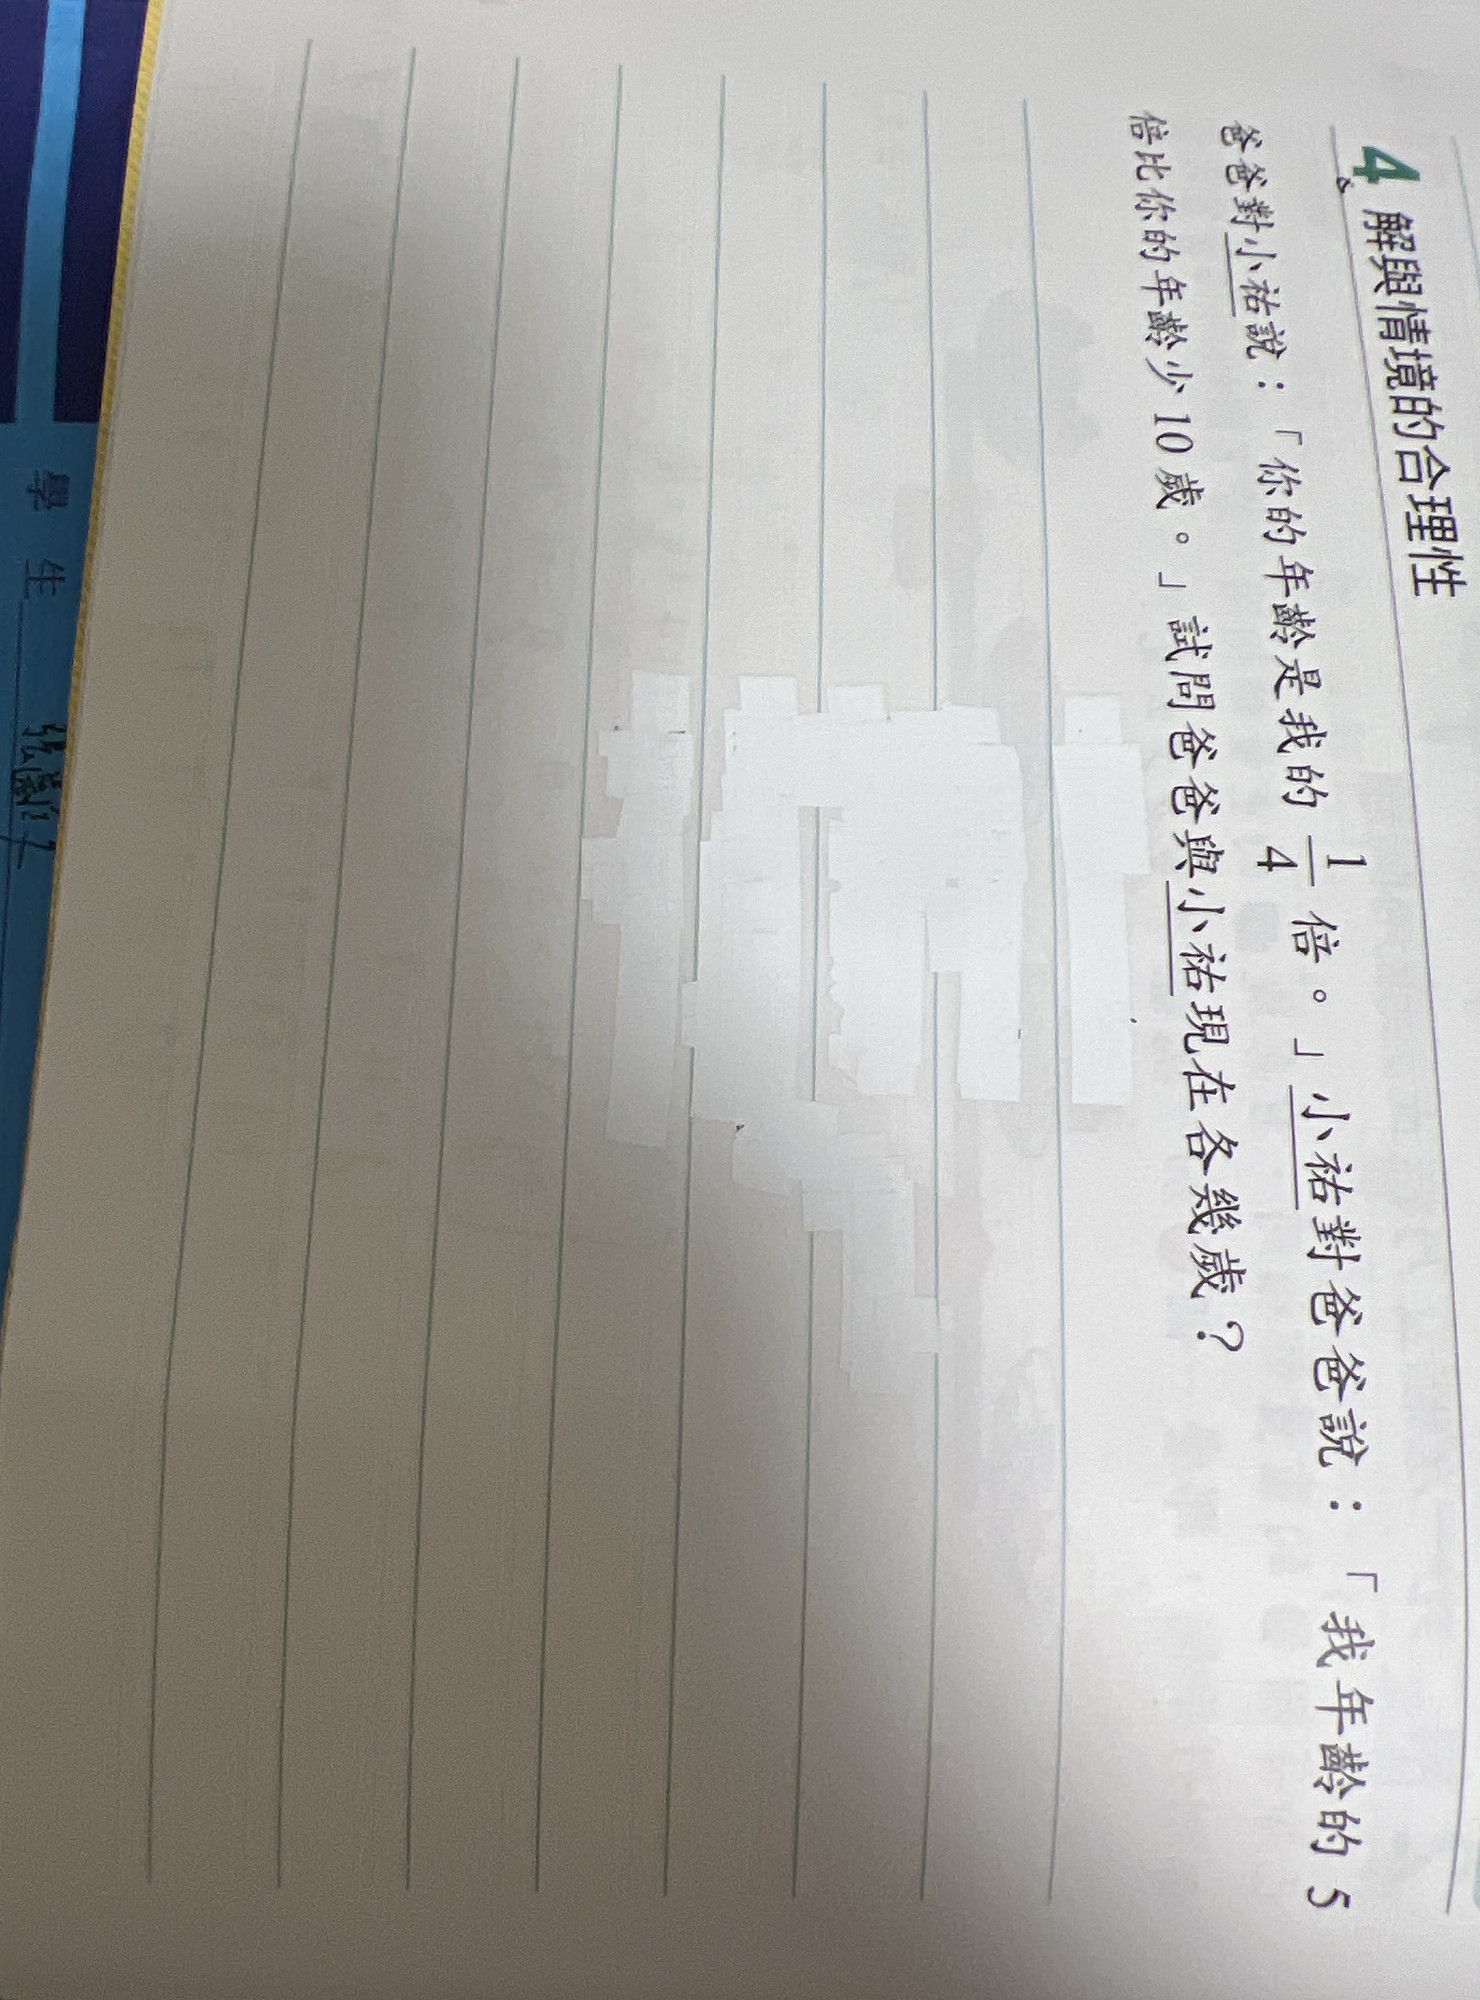 4 解與情境的合理性
爸爸對小祐說：「你的年齡是我的 1/4 倍。」小祐對爸爸說：「我年齡的 5
倍比你的年齡少 10 歲。」試問爸爸與小祐現在各幾歲？
學 生